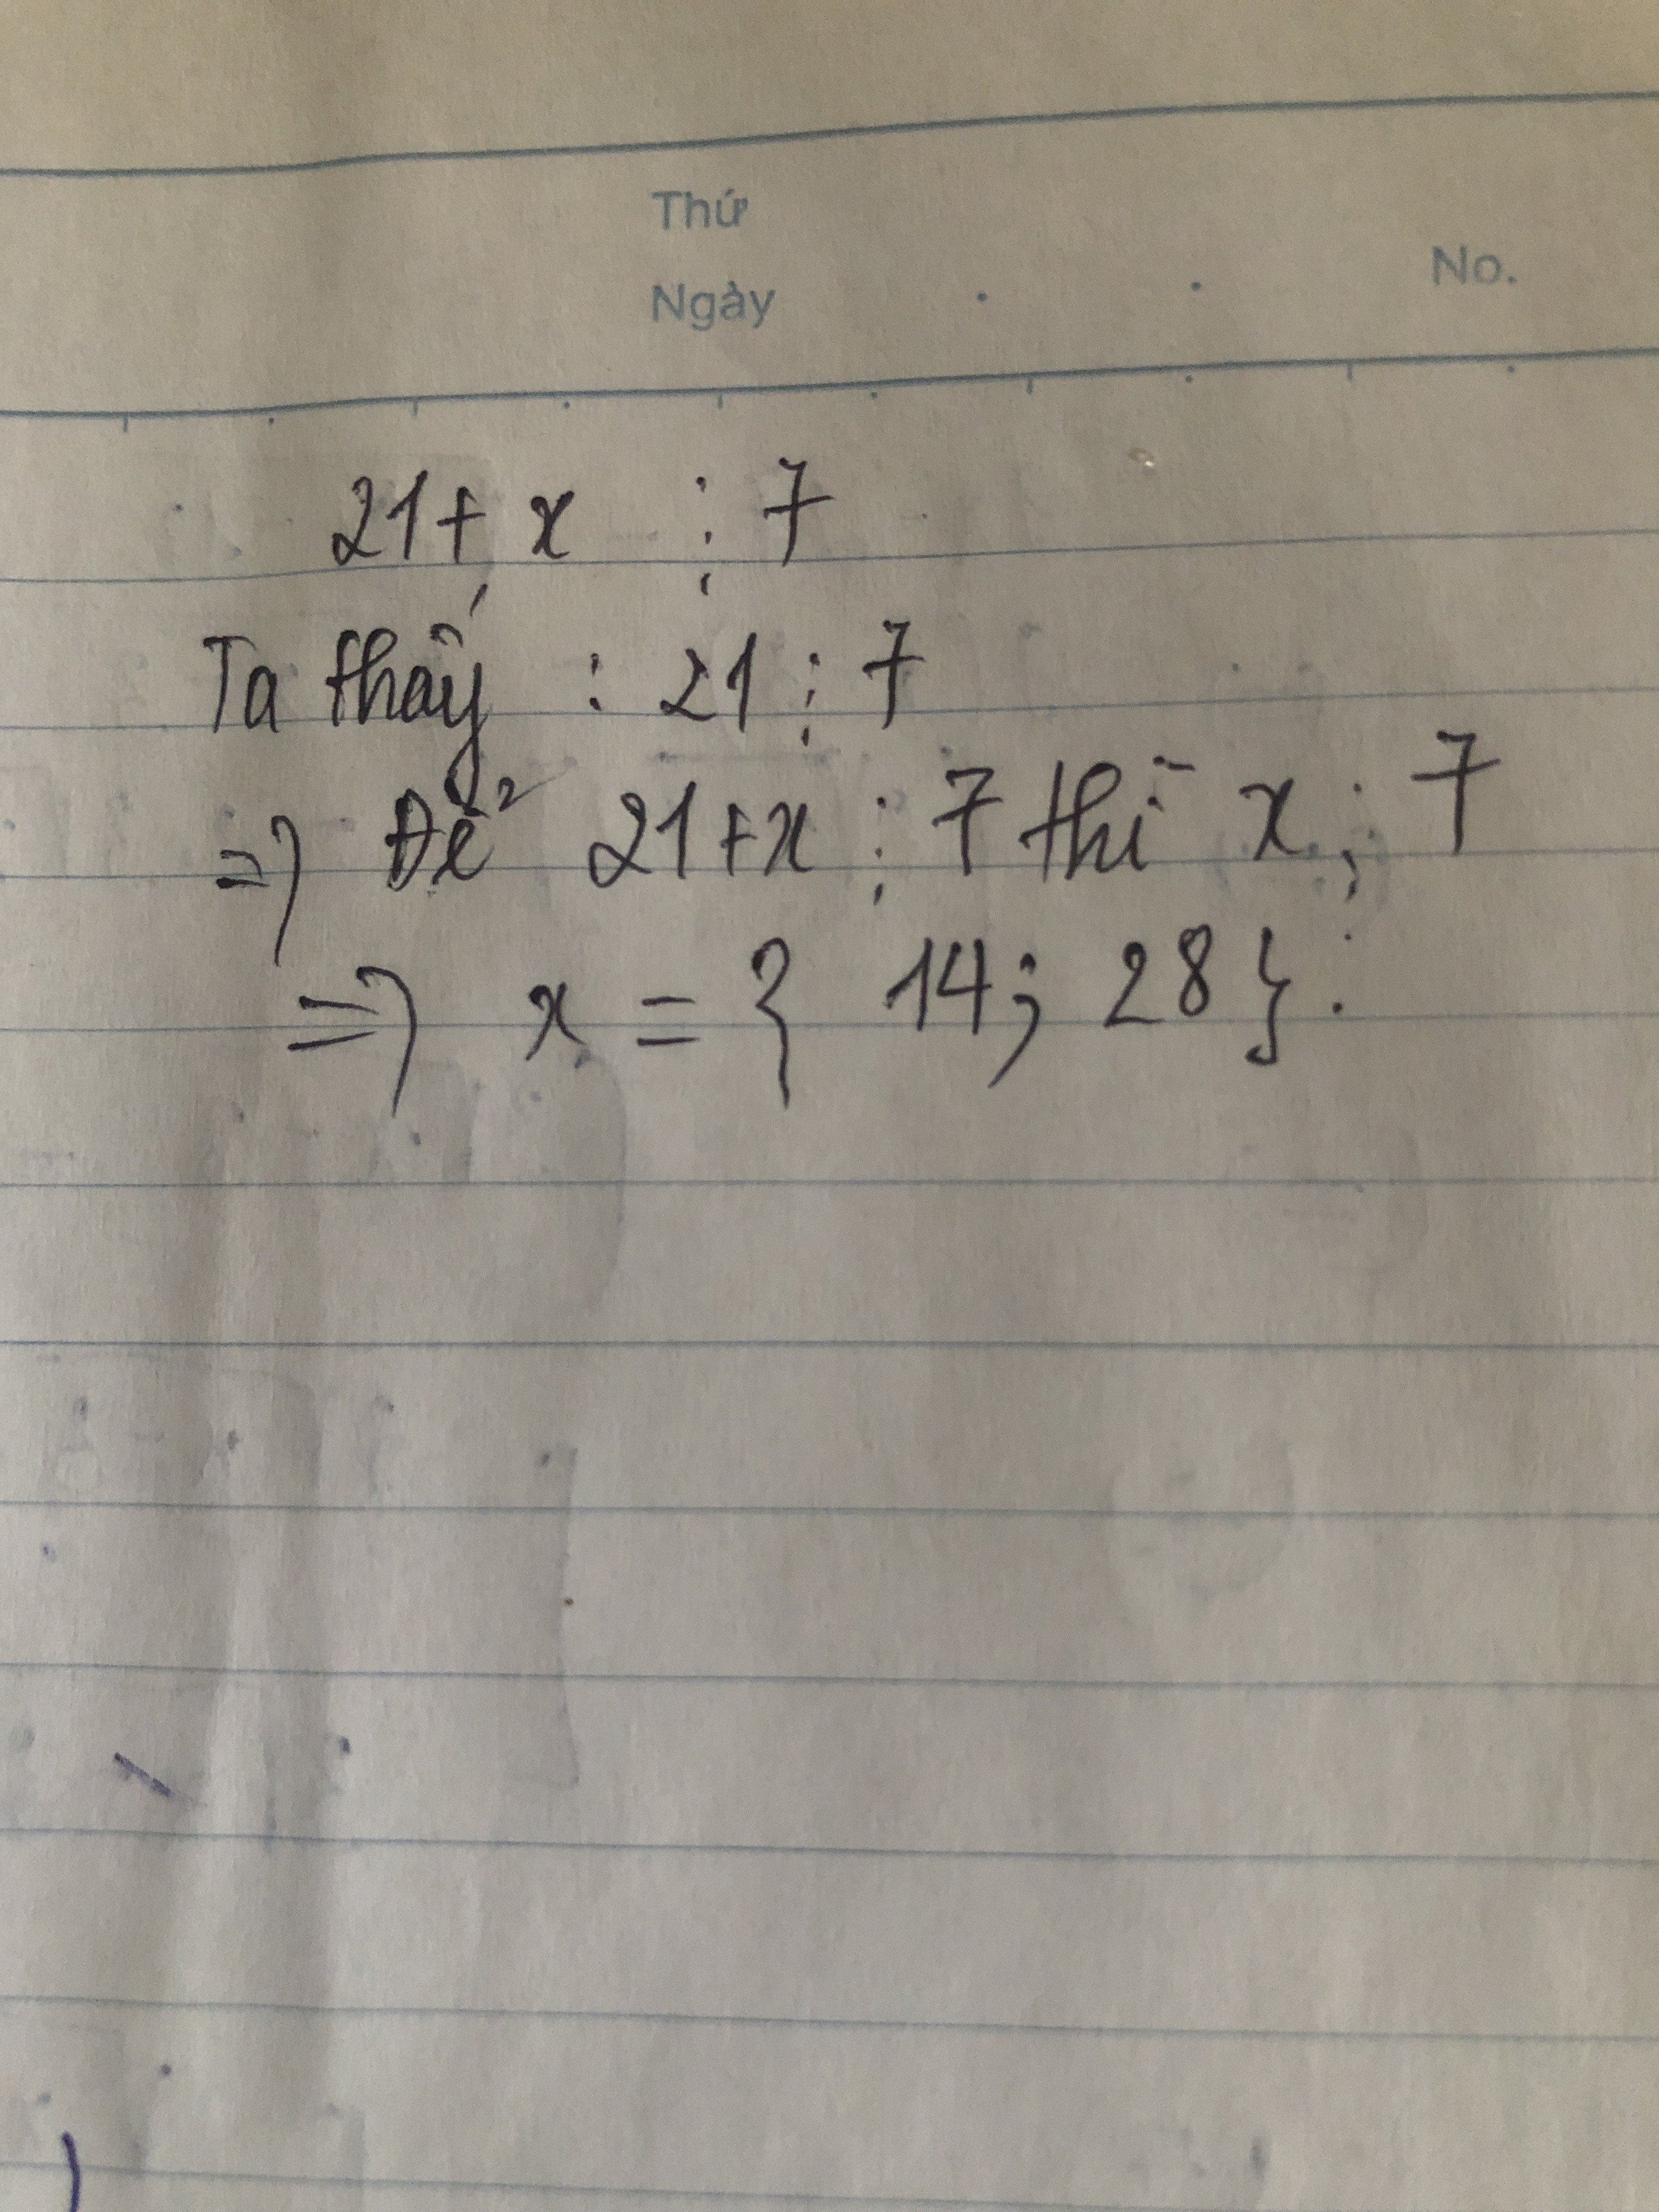 Thứ
Ngày
No.
21 + x ⋮ 7
Ta thấy : 21 ⋮ 7
=> Để 21+x ⋮ 7 thì x ⋮ 7
=> x = { 14; 28 }.